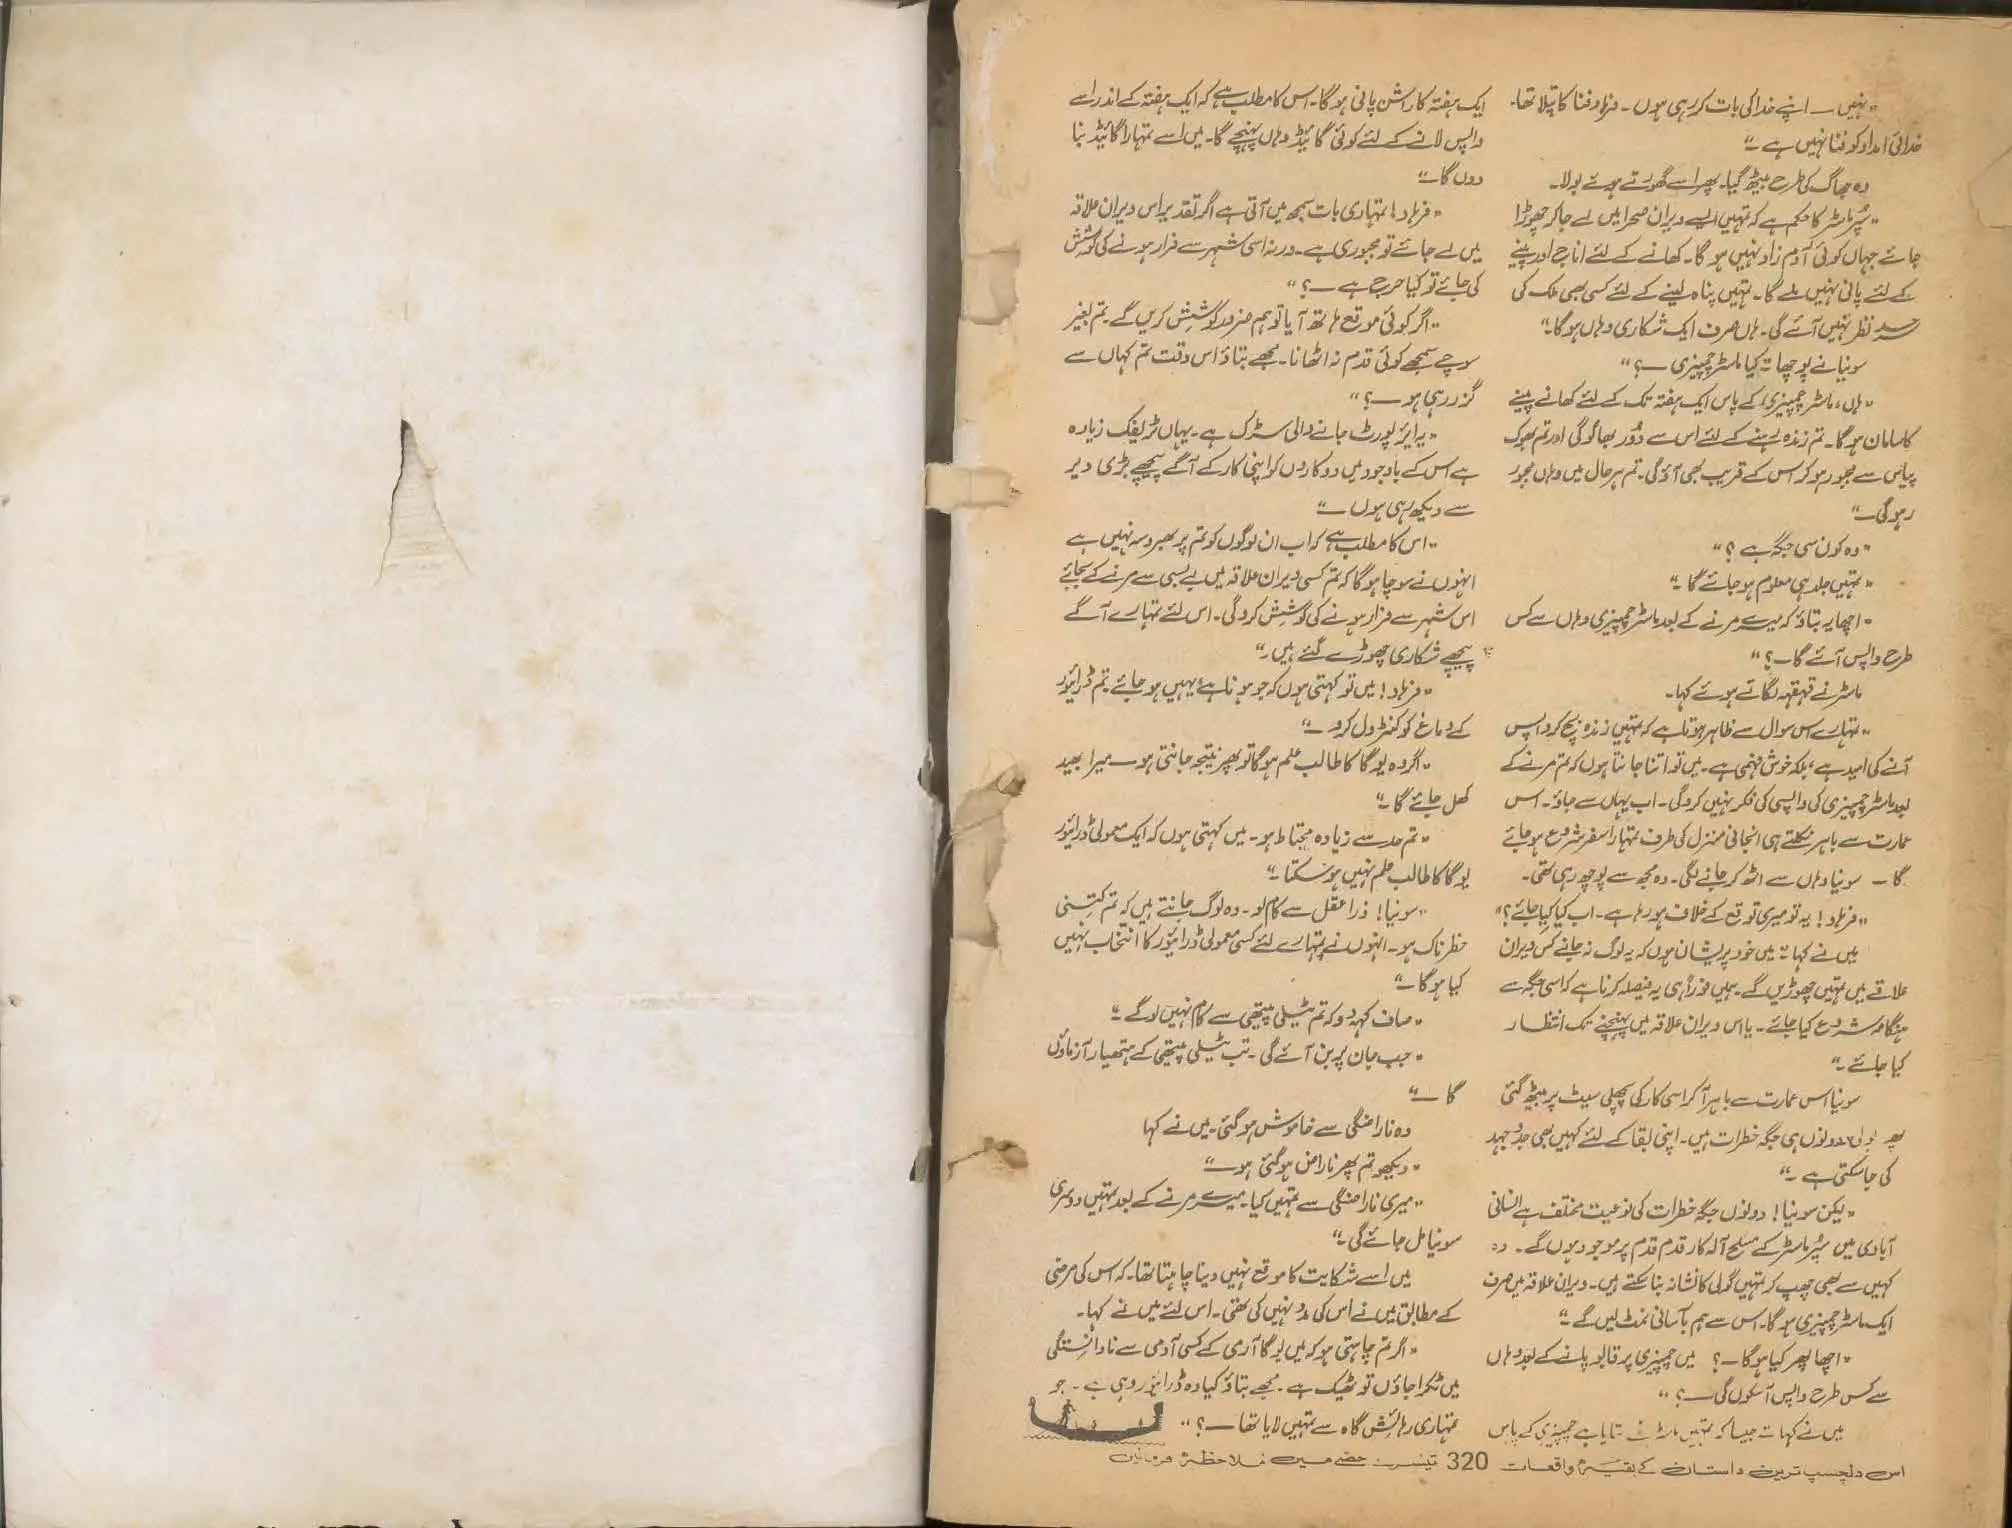 "نہیں — اپنے خدا کی بات کر رہی ہوں۔ فرہاد فنا کا پتلا تھا۔
خدائی امداد کو فنا نہیں ہے۔"
وہ جھاگ کی طرح بیٹھ گیا۔ پھر اسے گھورتے ہوئے بولا۔
"سُپر ماسٹر کا حکم ہے کہ تمہیں ایسے ویران صحرا میں لے جا کر چھوڑا
جائے جہاں کوئی آدم زاد نہیں ہو گا۔ کھانے کے لئے اناج اور پینے
کے لئے پانی نہیں ملے گا۔ تمہیں پناہ لینے کے لئے کسی بھی ملک کی
سرحد نظر نہیں آئے گی۔ ہاں صرف ایک شکاری وہاں ہو گا۔"
سونیا نے پوچھا "کیا ماسٹر چمپنیزی —؟"
"ہاں، ماسٹر چمپنیزی کے پاس ایک ہفتہ تک کے لئے کھانے پینے
کا سامان ہو گا۔ تم زندہ رہنے کے لئے اس سے دُور بھاگو گی اور تم بھوک
پیاس سے مجبور ہو کر اس کے قریب بھی آؤ گی۔ تم ہر حال میں وہاں مجبور
رہو گی۔"
"وہ کون سی جگہ ہے؟"
"تمہیں جلد ہی معلوم ہو جائے گا۔"
"اچھا یہ بتاؤ کہ میرے مرنے کے بعد ماسٹر چمپنیزی وہاں سے کس
طرح واپس آئے گا —؟"
ماسٹر نے قہقہہ لگاتے ہوئے کہا۔
"تمہارے اس سوال سے ظاہر ہوتا ہے کہ تمہیں زندہ بچ کر واپس
آنے کی امید ہے، بلکہ خوش فہمی ہے۔ میں تو اتنا جانتا ہوں کہ تم مرنے کے
بعد ماسٹر چمپنیزی کی واپسی کی فکر نہیں کرو گی۔ اب یہاں سے جاؤ۔ اس
عمارت سے باہر نکلتے ہی انجانی منزل کی طرف تمہارا سفر شروع ہو جائے
گا — سونیا وہاں سے اٹھ کر جانے لگی۔ وہ مجھ سے پوچھ رہی تھی۔
"فرہاد! یہ تو میری توقع کے خلاف ہو رہا ہے۔ اب کیا کیا جائے؟"
میں نے کہا "میں خود پریشان ہوں کہ یہ لوگ نہ جانے کس ویران
علاقے میں تمہیں چھوڑیں گے۔ ہمیں فوراً ہی یہ فیصلہ کرنا ہے کہ اسی جگہ سے
ہنگامہ شروع کیا جائے۔ یا اس ویران علاقہ میں پہنچنے تک انتظار
کیا جائے۔"
سونیا اس عمارت سے باہر آ کر اسی کار کی پچھلی سیٹ پر بیٹھ گئی
پھر بولی "دونوں ہی جگہ خطرات ہیں۔ اپنی بقا کے لئے کہیں بھی جدوجہد
کی جا سکتی ہے۔"
"لیکن سونیا! دونوں جگہ خطرات کی نوعیت مختلف ہے انسانی
آبادی میں سپر ماسٹر کے مسلح آلہ کار قدم قدم پر موجود ہوں گے۔ وہ
کہیں سے بھی چھپ کر تمہیں گولی کا نشانہ بنا سکتے ہیں۔ ویران علاقہ میں صرف
ایک ماسٹر چمپنیزی ہو گا۔ اس سے ہم بآسانی نمٹ لیں گے۔"
"اچھا پھر کیا ہو گا —؟ میں چمپنیزی پر قابو پانے کے بعد وہاں
سے کس طرح واپس آ سکوں گی —؟"
میں نے کہا "جیسا کہ تمہیں ماسٹر نے بتایا ہے چمپنیزی کے پاس
ایک ہفتہ کا راشن پانی ہو گا۔ اس کا مطلب ہے کہ ایک ہفتہ کے اندر اسے
واپس لانے کے لئے کوئی گائیڈ وہاں پہنچے گا۔ میں اسے تمہارا گائیڈ بنا
دوں گا۔"
"فرہاد! تمہاری بات سمجھ میں آتی ہے اگر تقدیر اس ویران علاقہ
میں لے جائے تو مجبوری ہے۔ ورنہ اسی شہر سے فرار ہونے کی کوشش
کی جائے تو کیا حرج ہے —؟"
"اگر کوئی موقع ہاتھ آیا تو ہم ضرور کوشش کریں گے۔ تم بغیر
سوچے سمجھے کوئی قدم نہ اٹھانا۔ مجھے بتاؤ اس وقت تم کہاں سے
گزر رہی ہو —؟"
"یہ ایئرپورٹ جانے والی سڑک ہے۔ یہاں ٹریفک زیادہ
ہے اس کے باوجود میں دو کاروں کو اپنی کار کے آگے پیچھے بڑی دیر
سے دیکھ رہی ہوں۔"
"اس کا مطلب ہے کہ اب ان لوگوں کو تم پر بھروسہ نہیں ہے
انہوں نے سوچا ہو گا کہ تم کسی ویران علاقہ میں بے بسی سے مرنے کے بجائے
اس شہر سے فرار ہونے کی کوشش کرو گی۔ اس لئے تمہارے آگے
پیچھے شکاری چھوڑے گئے ہیں۔"
"فرہاد! میں تو کہتی ہوں کہ جو ہونا ہے، یہیں ہو جائے۔ تم ڈرائیور
کے دماغ کو کنٹرول کرو۔"
"اگر وہ یوگا کا طالب علم ہو گا تو پھر نتیجہ جانتی ہو — میرا بھید
کھل جائے گا۔"
"تم حد سے زیادہ محتاط ہو۔ میں کہتی ہوں کہ ایک معمولی ڈرائیور
یوگا کا طالب علم نہیں ہو سکتا۔"
"سونیا! ذرا عقل سے کام لو۔ وہ لوگ جانتے ہیں کہ تم کتنی
خطرناک ہو۔ انہوں نے تمہارے لئے کسی معمولی ڈرائیور کا انتخاب نہیں
کیا ہو گا۔"
"صاف کہہ دو کہ تم ٹیلی پیتھی سے کام نہیں لو گے۔"
"جب جان پر بن آئے گی۔ تب ٹیلی پیتھی کے ہتھیار آزماؤں
گا —"
وہ ناراضگی سے خاموش ہو گئی۔ میں نے کہا
"دیکھو تم پھر ناراض ہو گئی ہو —"
"میری ناراضگی سے تمہیں کیا۔ میرے مرنے کے بعد تمہیں دوسری
سونیا مل جائے گی۔"
میں اسے شکایت کا موقع نہیں دینا چاہتا تھا۔ کہ اس کی مرضی
کے مطابق میں نے اس کی مدد نہیں کی تھی۔ اس لئے میں نے کہا۔
"اگر تم چاہتی ہو کہ میں یوگا آرمی کے کسی آدمی سے نادانستگی
میں ٹکرا جاؤں تو ٹھیک ہے۔ مجھے بتاؤ کیا وہ ڈرائیور وہی ہے۔ جو
تمہاری رہائش گاہ سے تمہیں لایا تھا —؟"
اس دلچسپ ترین داستان کے بقیہ واقعات 320 تیسرے حصے میں ملاحظہ فرمائیں